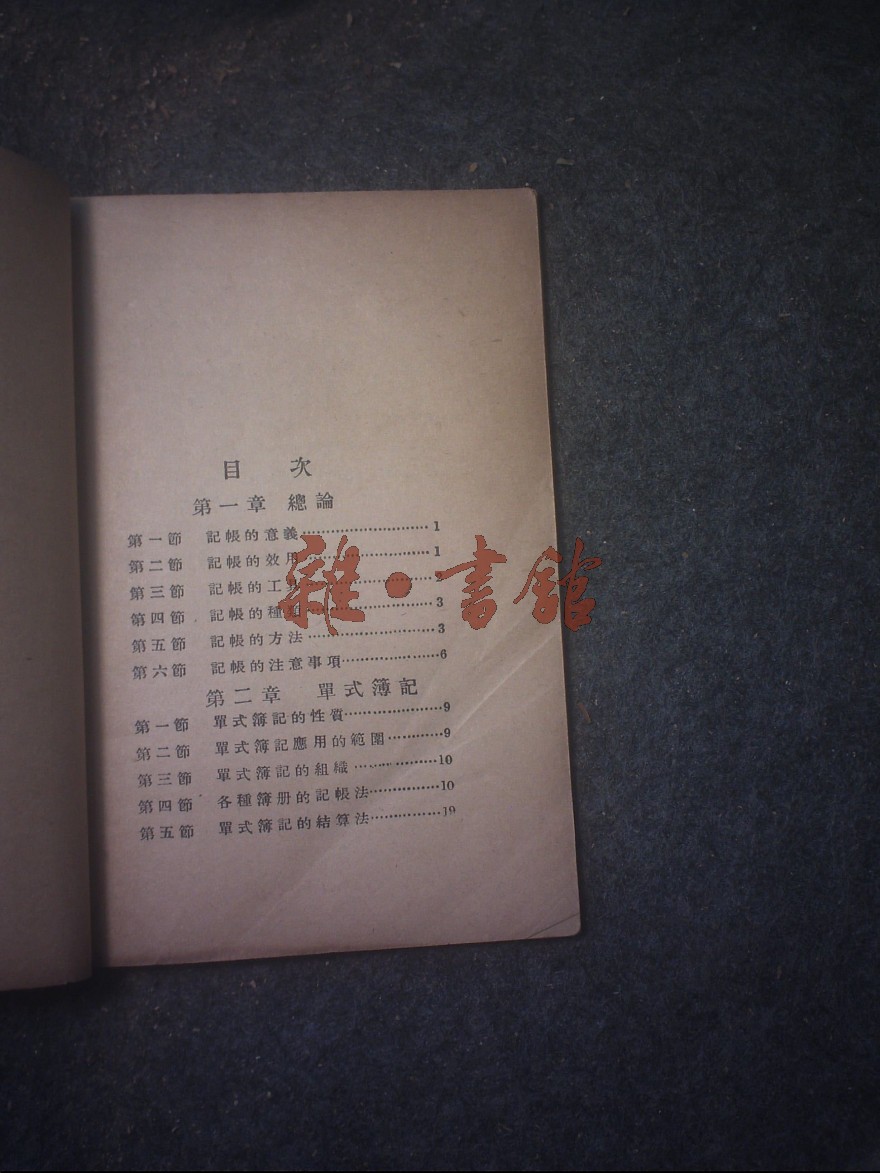 目 次
第一章 總論
第一節 記帳的意義…………………………1
第二節 記帳的效用…………………………1
第三節 記帳的工具…………………………2
第四節 記帳的種類…………………………3
第五節 記帳的方法…………………………3
第六節 記帳的注意事項…………………6
第二章 單式簿記
第一節 單式簿記的性質…………………9
第二節 單式簿記應用的範圍…………9
第三節 單式簿記的組織………………10
第四節 各種簿册的記帳法……………10
第五節 單式簿記的結算法……………19
雜·書館